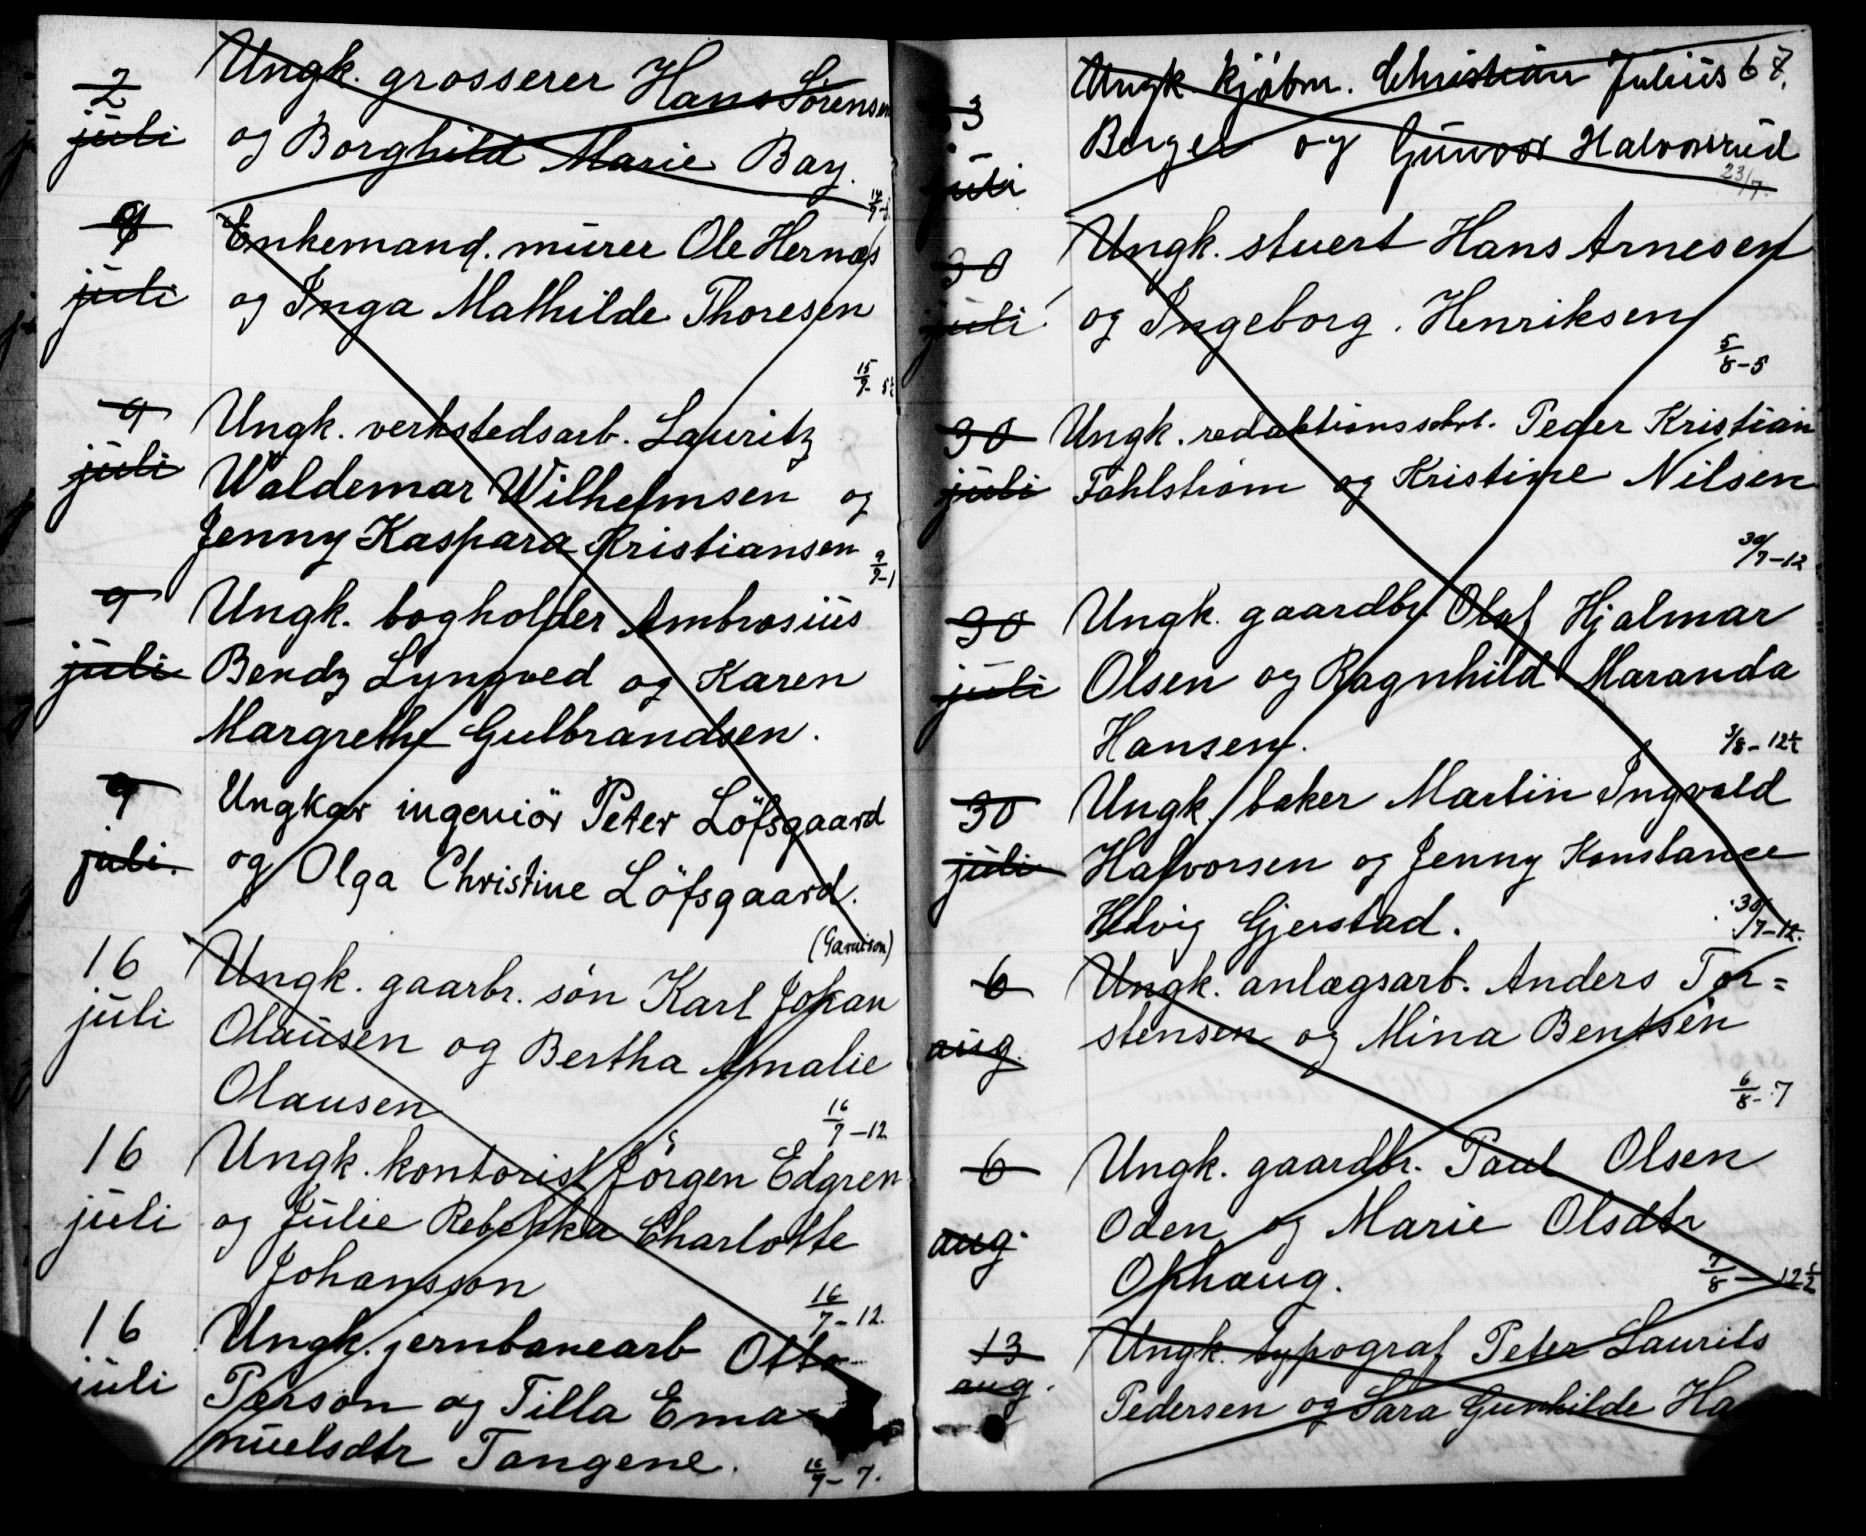 2 juli Ungk. grosserer Hans Sörensen
og Borghild Marie Bay.
9 juli Enkemand. murer Ole Hernæs
og Inga Mathilde Thoresen
15/7-
9 juli Ungk. verkstedsarb. Lauritz
Waldemar Wilhelmsen og
Jenny Kaspara Kristiansen
9/7-1
9 juli Ungk. bogholder Ambrosius
Bendz Lyngved og Karen
Margrethe Gulbrandsen.
9 juli. Ungkar ingeniör Peter Löfsgaard
og Olga Christine Löfsgaard.
(Garnison)
16 juli Ungk. gaarbr. sön Karl Johan
Olausen og Bertha Amalie
Olausen
16/7-12
16 juli Ungk. kontorist Jörgen Edgren
og Julie Rebekka Charlotte
Johansson
16/7-12.
16 juli Ungk. jernbanearb Otto
Person og Tilla Ema-
nuelsdtr Tangene.
16/7-7.
67.
juli Ungk. kjöbm. Christian Julius
Berger og Gunvor Halvorsrud
23/7.
30 juli Ungk. stuert Hans Arnesen
og Ingeborg. Henriksen
5/8-5
30 juli Ungk. redaktionssekr. Peder Kristian
Fahlström og Kristine Nilsen
30/7-12
30 juli Ungk. gaardbr. Olaf Hjalmar
Olsen og Ragnhild Maranda
Hansen.
3/8-12½
30 juli Ungk. baker Martin Ingvald
Halvorsen og Jenny Konstance
Hedvig Gjerstad.
30/7-12.
6 aug. Ungk. anlægsarb. Anders Tor=
stensen og Mina Bentsen
6/8-7
6 aug. Ungk. gaardbr. Paul Olsen
Oden og Marie Olsdtr
Ophaug.
7/8-12½
13 aug. Ungk. typograf Peter Laurits
Pedersen og Sara Gunhilde